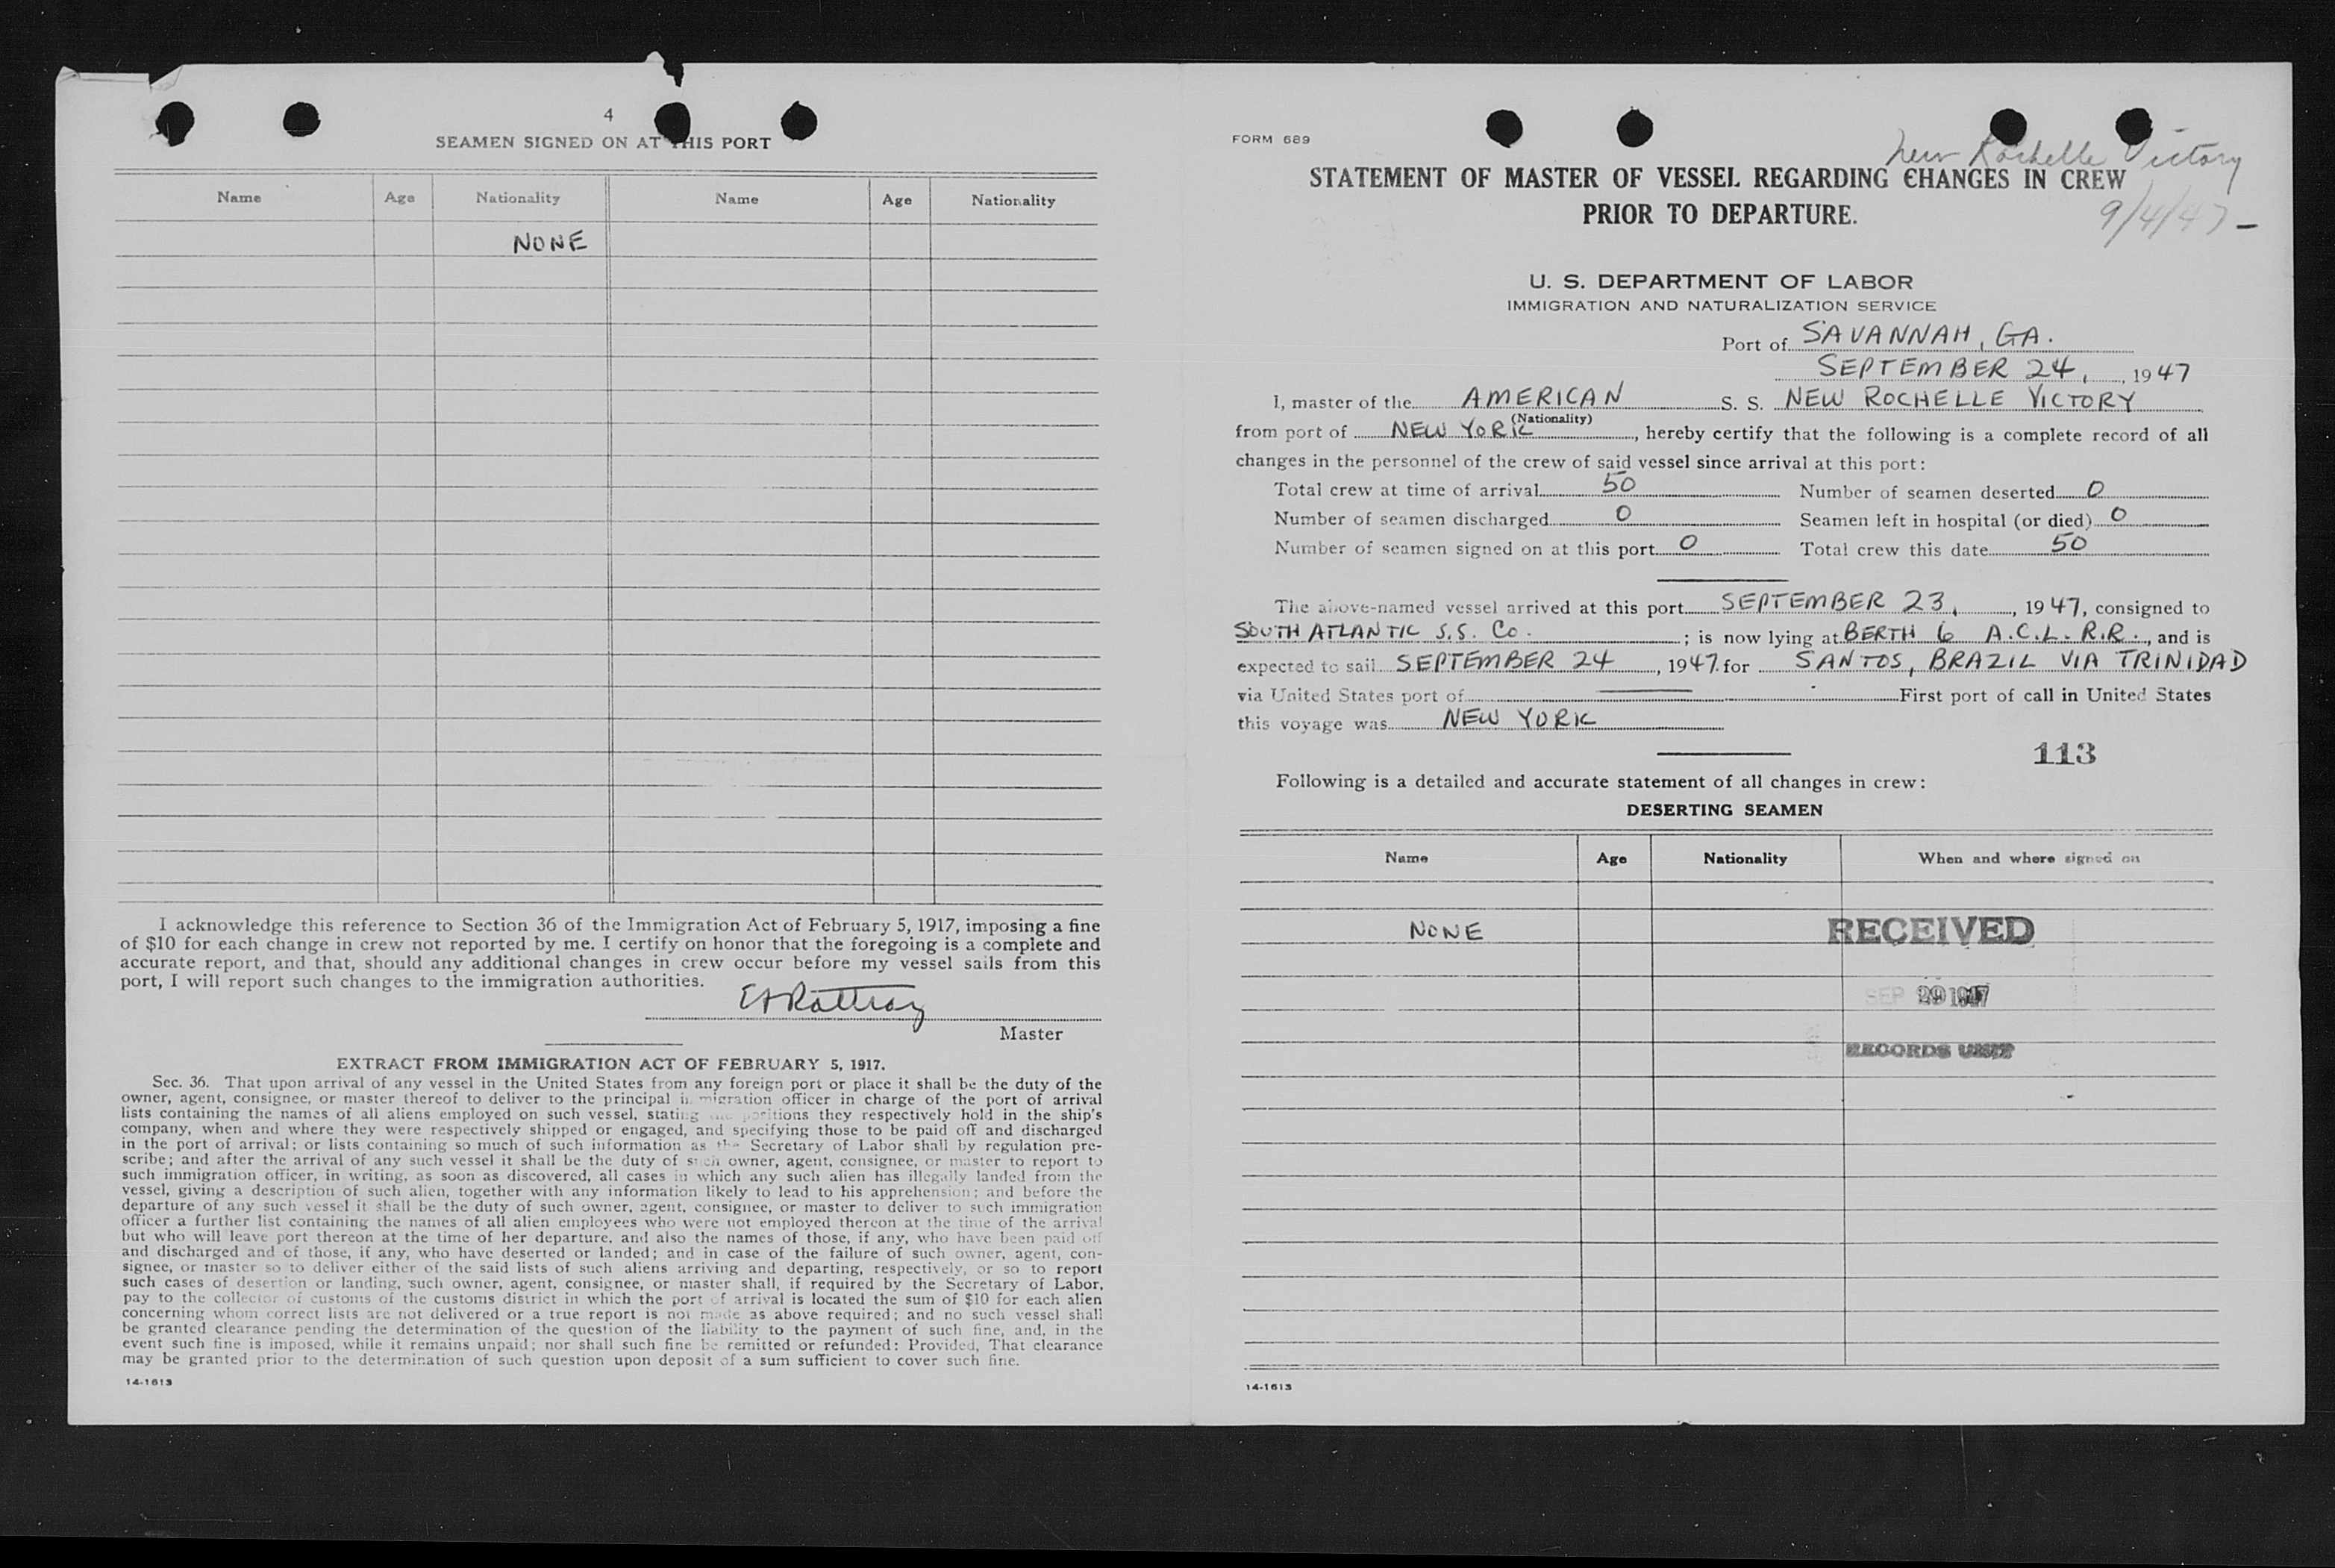 4
SEAMEN SIGNED ON AT THIS PORT
Name Age Nationality Name Age Nationality
NONE
I acknowledge this reference to Section 36 of the Immigration Act of February 5, 1917, imposing a fine
of $10 for each change in crew not reported by me. I certify on honor that the foregoing is a complete and
accurate report, and that, should any additional changes in crew occur before my vessel sails from this
port, I will report such changes to the immigration authorities.
Master
EXTRACT FROM IMMIGRATION ACT OF FEBRUARY 5, 1917.
Sec. 36. That upon arrival of any vessel in the United States from any foreign port or place it shall be the duty of the
owner, agent, consignee, or master thereof to deliver to the principal immigration officer in charge of the port of arrival
lists containing the names of all aliens employed on such vessel, stating the positions they respectively hold in the ship's
company, when and where they were respectively shipped or engaged, and specifying those to be paid off and discharged
in the port of arrival; or lists containing so much of such information as the Secretary of Labor shall by regulation pre-
scribe; and after the arrival of any such vessel it shall be the duty of such owner, agent, consignee, or master to report to
such immigration officer, in writing, as soon as discovered, all cases in which any such alien has illegally landed from the
vessel, giving a description of such alien, together with any information likely to lead to his apprehension; and before the
departure of any such vessel it shall be the duty of such owner, agent, consignee, or master to deliver to such immigration
officer a further list containing the names of all alien employees who were not employed thereon at the time of the arrival
but who will leave port thereon at the time of her departure, and also the names of those, if any, who have been paid off
and discharged and of those, if any, who have deserted or landed; and in case of the failure of such owner, agent, con-
signee, or master so to deliver either of the said lists of such aliens arriving and departing, respectively, or so to report
such cases of desertion or landing, such owner, agent, consignee, or master shall, if required by the Secretary of Labor,
pay to the collector of customs of the customs district in which the port of arrival is located the sum of $10 for each alien
concerning whom correct lists are not delivered or a true report is not made as above required; and no such vessel shall
be granted clearance pending the determination of the question of the liability to the payment of such fine, and, in the
event such fine is imposed, while it remains unpaid; nor shall such fine be remitted or refunded: Provided, That clearance
may be granted prior to the determination of such question upon deposit of a sum sufficient to cover such fine.
14-1613
FORM 689
New Rochelle Victory
STATEMENT OF MASTER OF VESSEL REGARDING CHANGES IN CREW
PRIOR TO DEPARTURE.
9/4/47 -
U. S. DEPARTMENT OF LABOR
IMMIGRATION AND NATURALIZATION SERVICE
Port of SAVANNAH, GA.
SEPTEMBER 24, , 1947
I, master of the AMERICAN S. S. NEW ROCHELLE VICTORY
(Nationality)
from port of NEW YORK , hereby certify that the following is a complete record of all
changes in the personnel of the crew of said vessel since arrival at this port:
Total crew at time of arrival 50 Number of seamen deserted 0
Number of seamen discharged 0 Seamen left in hospital (or died) 0
Number of seamen signed on at this port 0 Total crew this date 50
The above-named vessel arrived at this port SEPTEMBER 23, , 1947, consigned to
SOUTH ATLANTIC S.S. Co. ; is now lying at BERTH 6 A.C.L. R.R. , and is
expected to sail SEPTEMBER 24 , 1947. for SANTOS, BRAZIL VIA TRINIDAD
via United States port of — First port of call in United States
this voyage was NEW YORK
113
Following is a detailed and accurate statement of all changes in crew:
DESERTING SEAMEN
Name Age Nationality When and where signed on
NONE RECEIVED
SEP 29 1947
RECORDS UNIT
14-1613